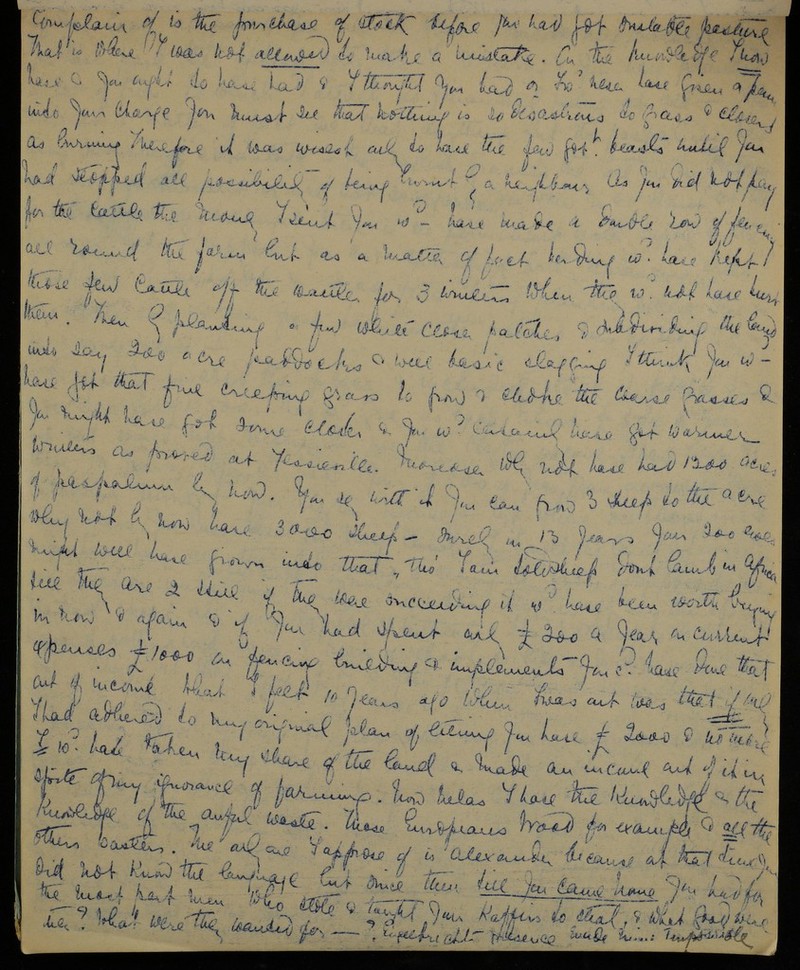 Complain of is the purchase of stock before you had got suitable pasture
that is where I was not allowed to make a mistake. On the knowledge I now
have & you ought to have had & I thought you had or I wd never have given a penny
into your charge you must see that nothing is so disastrous to grass & clovers
as burning therefore it was wisest only to have the few govt. beasts until you
had stopped all possibility of being burnt by a neighbour. As you did not pay
for the cattle the money I sent you wd have made a double row of fencing
all round the farm but as a matter of fact herding wd. have kept
those few cattle off the wattles for 3 winters when they wd. not have hurt
them. Then by planting a few white clover patches & subdividing the land
into say 200 acre paddocks & well basic slagging I think you wd
have got that fine creeping grass to grow & choke the coarse grasses &
you might have got some clover & you wd certainly have got warmer
winters as proved at Tessieville. Moreover why not have had 1200 acres
of paspalum by now. You say with it you can grow 3 sheep to the acre
why not by now have 3000 sheep - surely in 13 years your 200 ewes
might well have grown into that, tho' I am told sheep dont lamb in Africa
till they are 2 still if they were succeeding it wd. have been worth buying
in now & again & if you had spent only £200 a year on current
expenses £1000 on fencing building & implements you cd. have done that
out of income. What I feel 10 years ago when I was out was that if only
I had adhered to my original plan of letting you have £2000 & no more
I wd. have taken my share of the land & made an income out of it in
spite of my ignorance of farming. Now helas I have the knowledge & the
knowledge of the awful waste. Those Europeans Wood for example & all the
others wasters. The only one I approve of is Alexander because at that time you
did not know the language but since then till you came home you had for
the most part men who stole & taught your Kaffirs to steal. & what good were
they? What were they wanted for — ? presence made things impossible